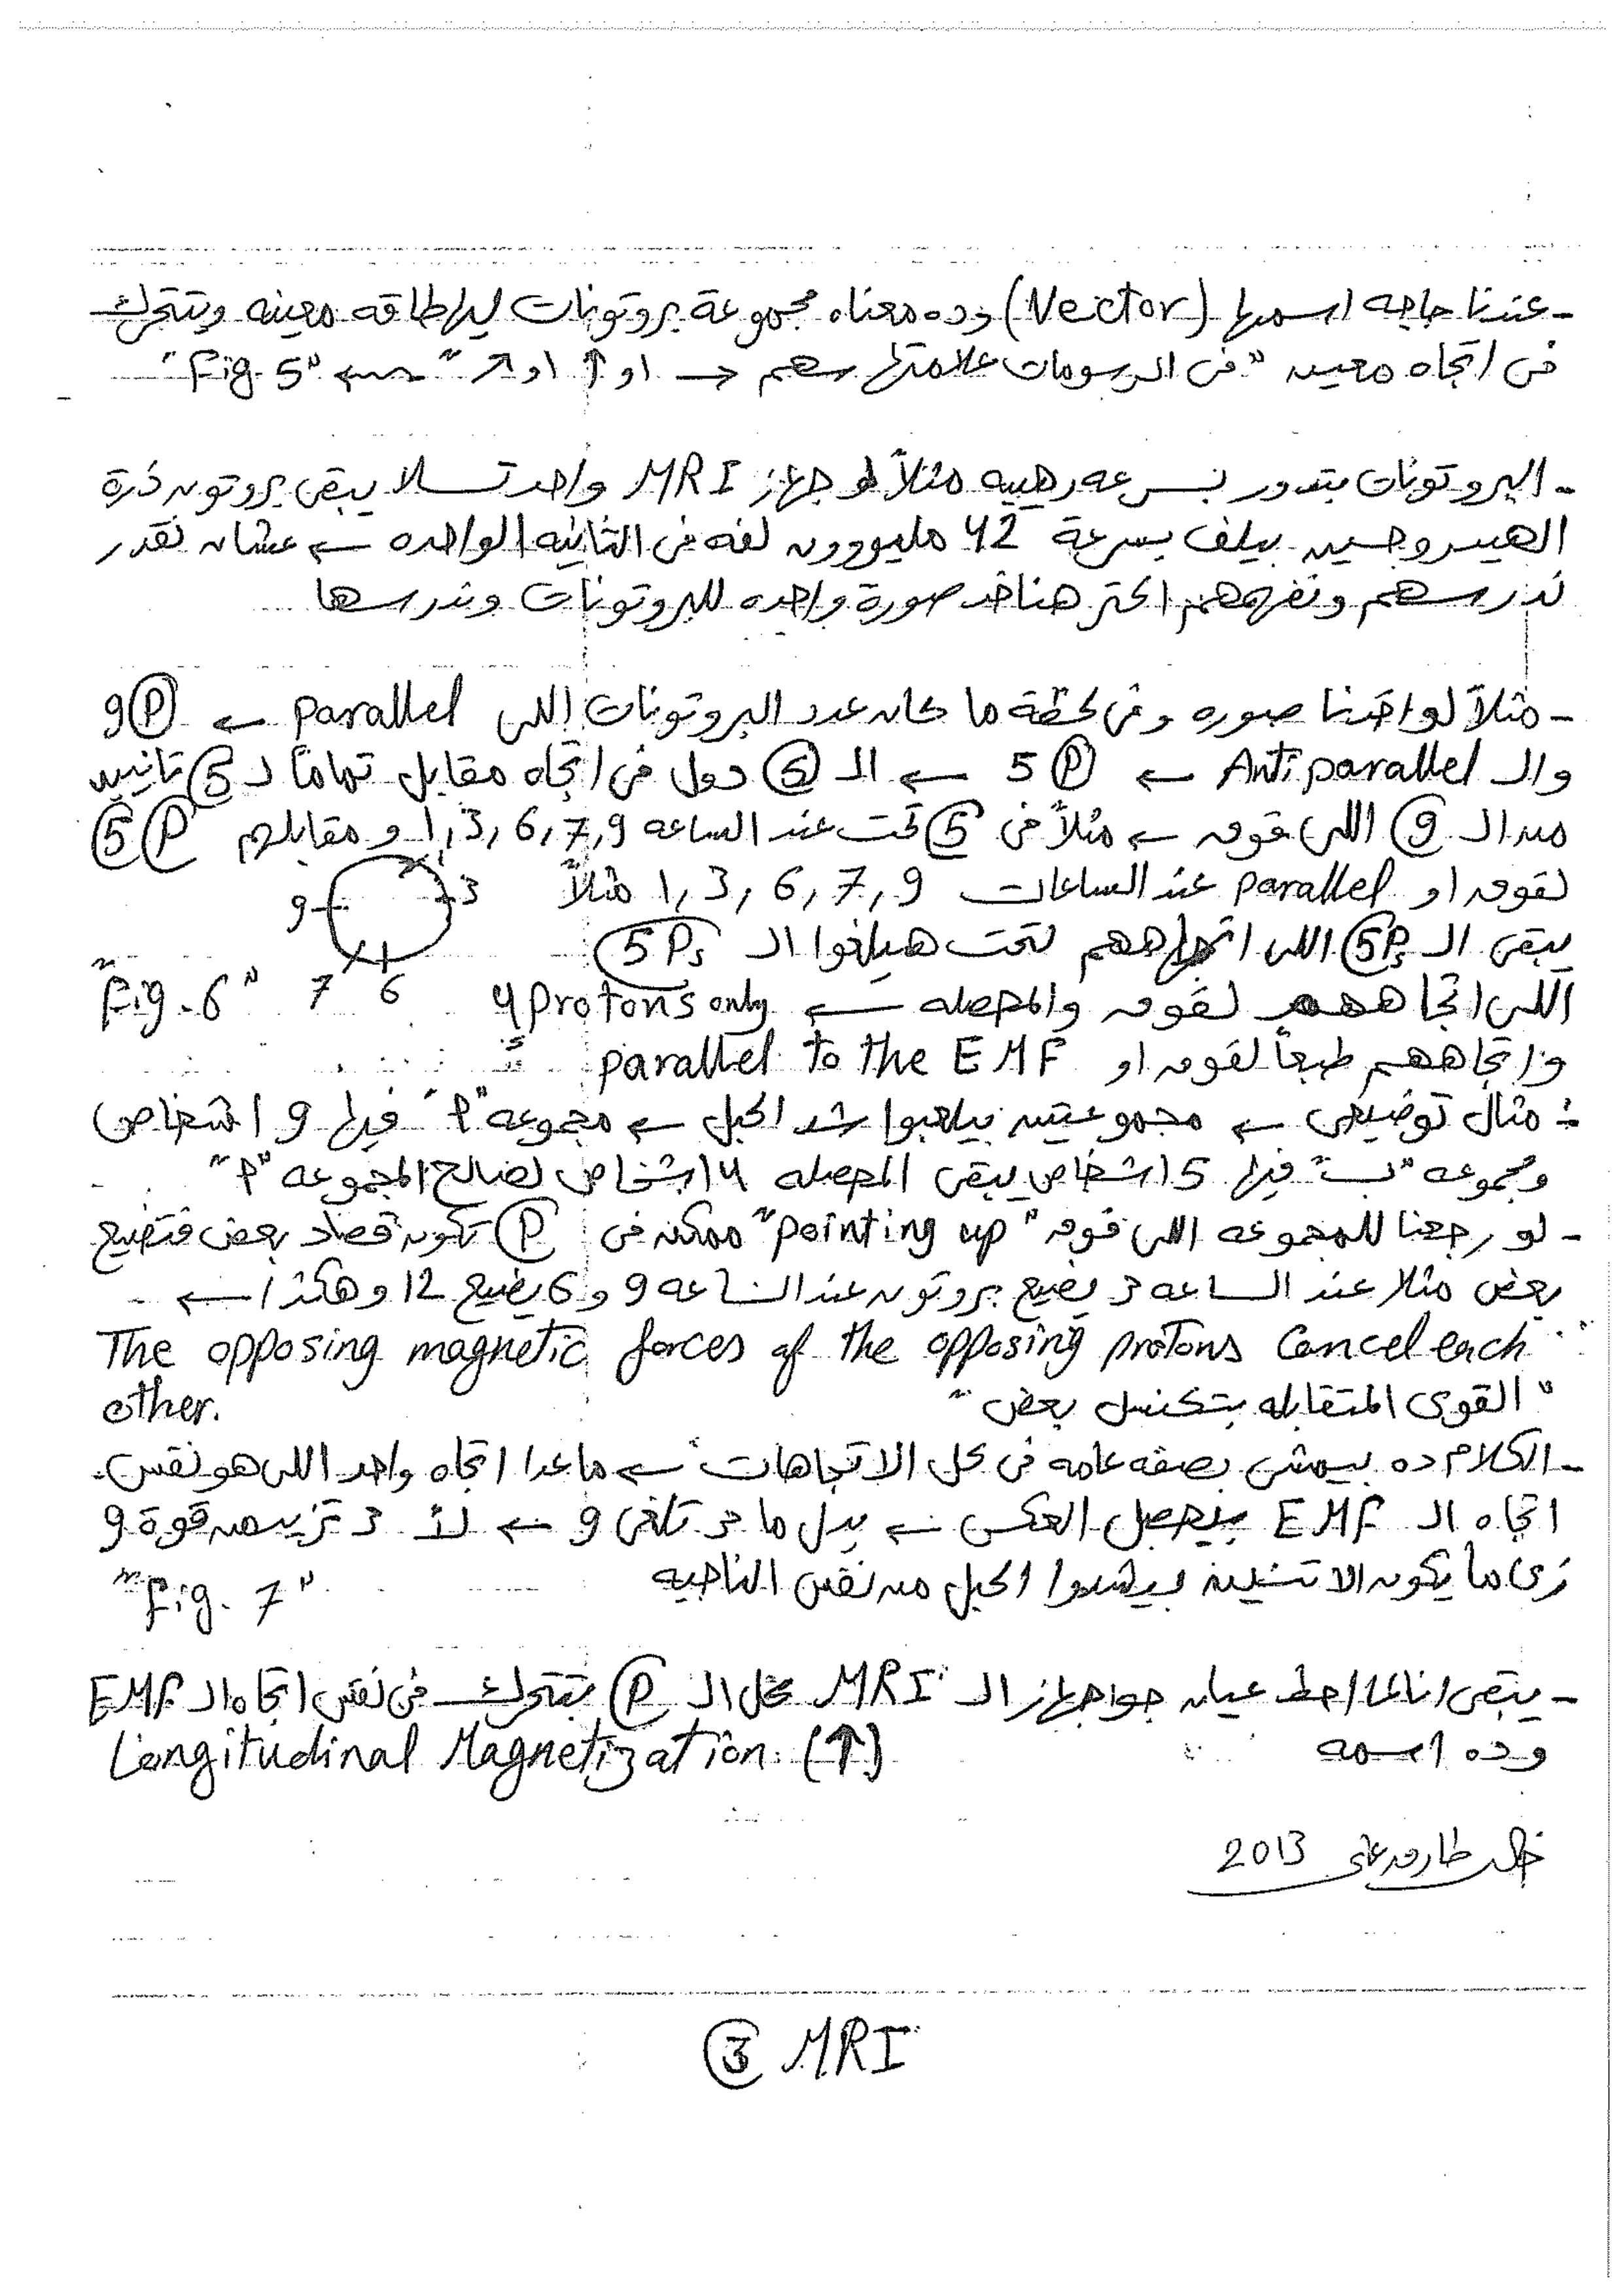 - عندنا حاجه اسمها (Vector) وده معناه مجموعة بروتونات ليها طاقه معينه وبتتحرك
فى اتجاه معين "فى الرسومات علامتها سهم → او ↑ او ↗" ← "Fig 5"
- البروتونات بتدور بسرعه رهيبه مثلاً لو جهاز MRI واحد تسلا يبقى بروتون ذرة
الهيدروجين بيلف بسرعة 42 مليووون لفه فى الثانيه الواحده ← عشان نقدر
ندرسهم ونفهمهم اكتر هناخد صورة واحده للبروتونات وندرسها
- مثلاً لو اخدنا صوره وفى لحظة ما كان عدد البروتونات اللى parallel ← 9 P
والـ Antiparallel ← 5 P ← الـ 5 دول فى اتجاه مقابل تماماً لـ 5 تانيين
من الـ 9 اللى فوق ← مثلاً فى 5 تحت عند الساعه 1, 3, 6, 7, 9 و مقابلهم 5 P
لفوق او parallel عند الساعات 1, 3, 6, 7, 9 مثلاً
1 3 9 7 6
يبقى الـ 5Ps اللى اتجاههم لتحت هيلغوا الـ 5Ps
اللى اتجاههم لفوق والمحصله ← 4 protons only "Fig. 6"
واتجاههم طبعاً لفوق او parallel to the EMF
: مثال توضيحى ← مجموعتين بيلعبوا شد الحبل ← مجموعه "أ" فيها 9 اشخاص
ومجموعه "ب" فيها 5 اشخاص يبقى المحصله 4 اشخاص لصالح المجموعه "أ"
- لو رجعنا للمجموعه اللى فوق "pointing up" ممكن فى P تكون قصاد بعض فتضيع
بعض مثلا عند الساعه 3 يضيع بروتون عند الساعه 9 و 6 يضيع 12 وهكذا ←
The opposing magnetic forces of the opposing protons Cancel each
other. "القوى المتقابله بتكنسل بعض"
- الكلام ده بيمشى بصفه عامه فى كل الاتجاهات ← ماعدا اتجاه واحد اللى هو نفس
اتجاه الـ EMF بيحصل العكس ← بدل ما 3 تلغى 9 ← لأ 3 تزيد من قوة 9
زى ما يكون الاتنين بيشدوا الحبل من نفس الناحيه "Fig. 7"
- يبقى انا لما احط عيان جوا جهاز الـ MRI كل الـ P بتتحرك فى نفس اتجاه الـ EMF
وده اسمه Longitudinal Magnetization (↑)
خالد طارق على 2013
3 MRI